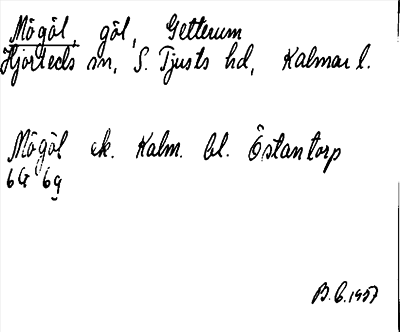 Mögöl, göl, Getterum
Hjorteds sn, S. Tjusts hd, Kalmar l.
Mögöl ek. Kalm. bl. Östantorp
6G 6g
B.C. 1957